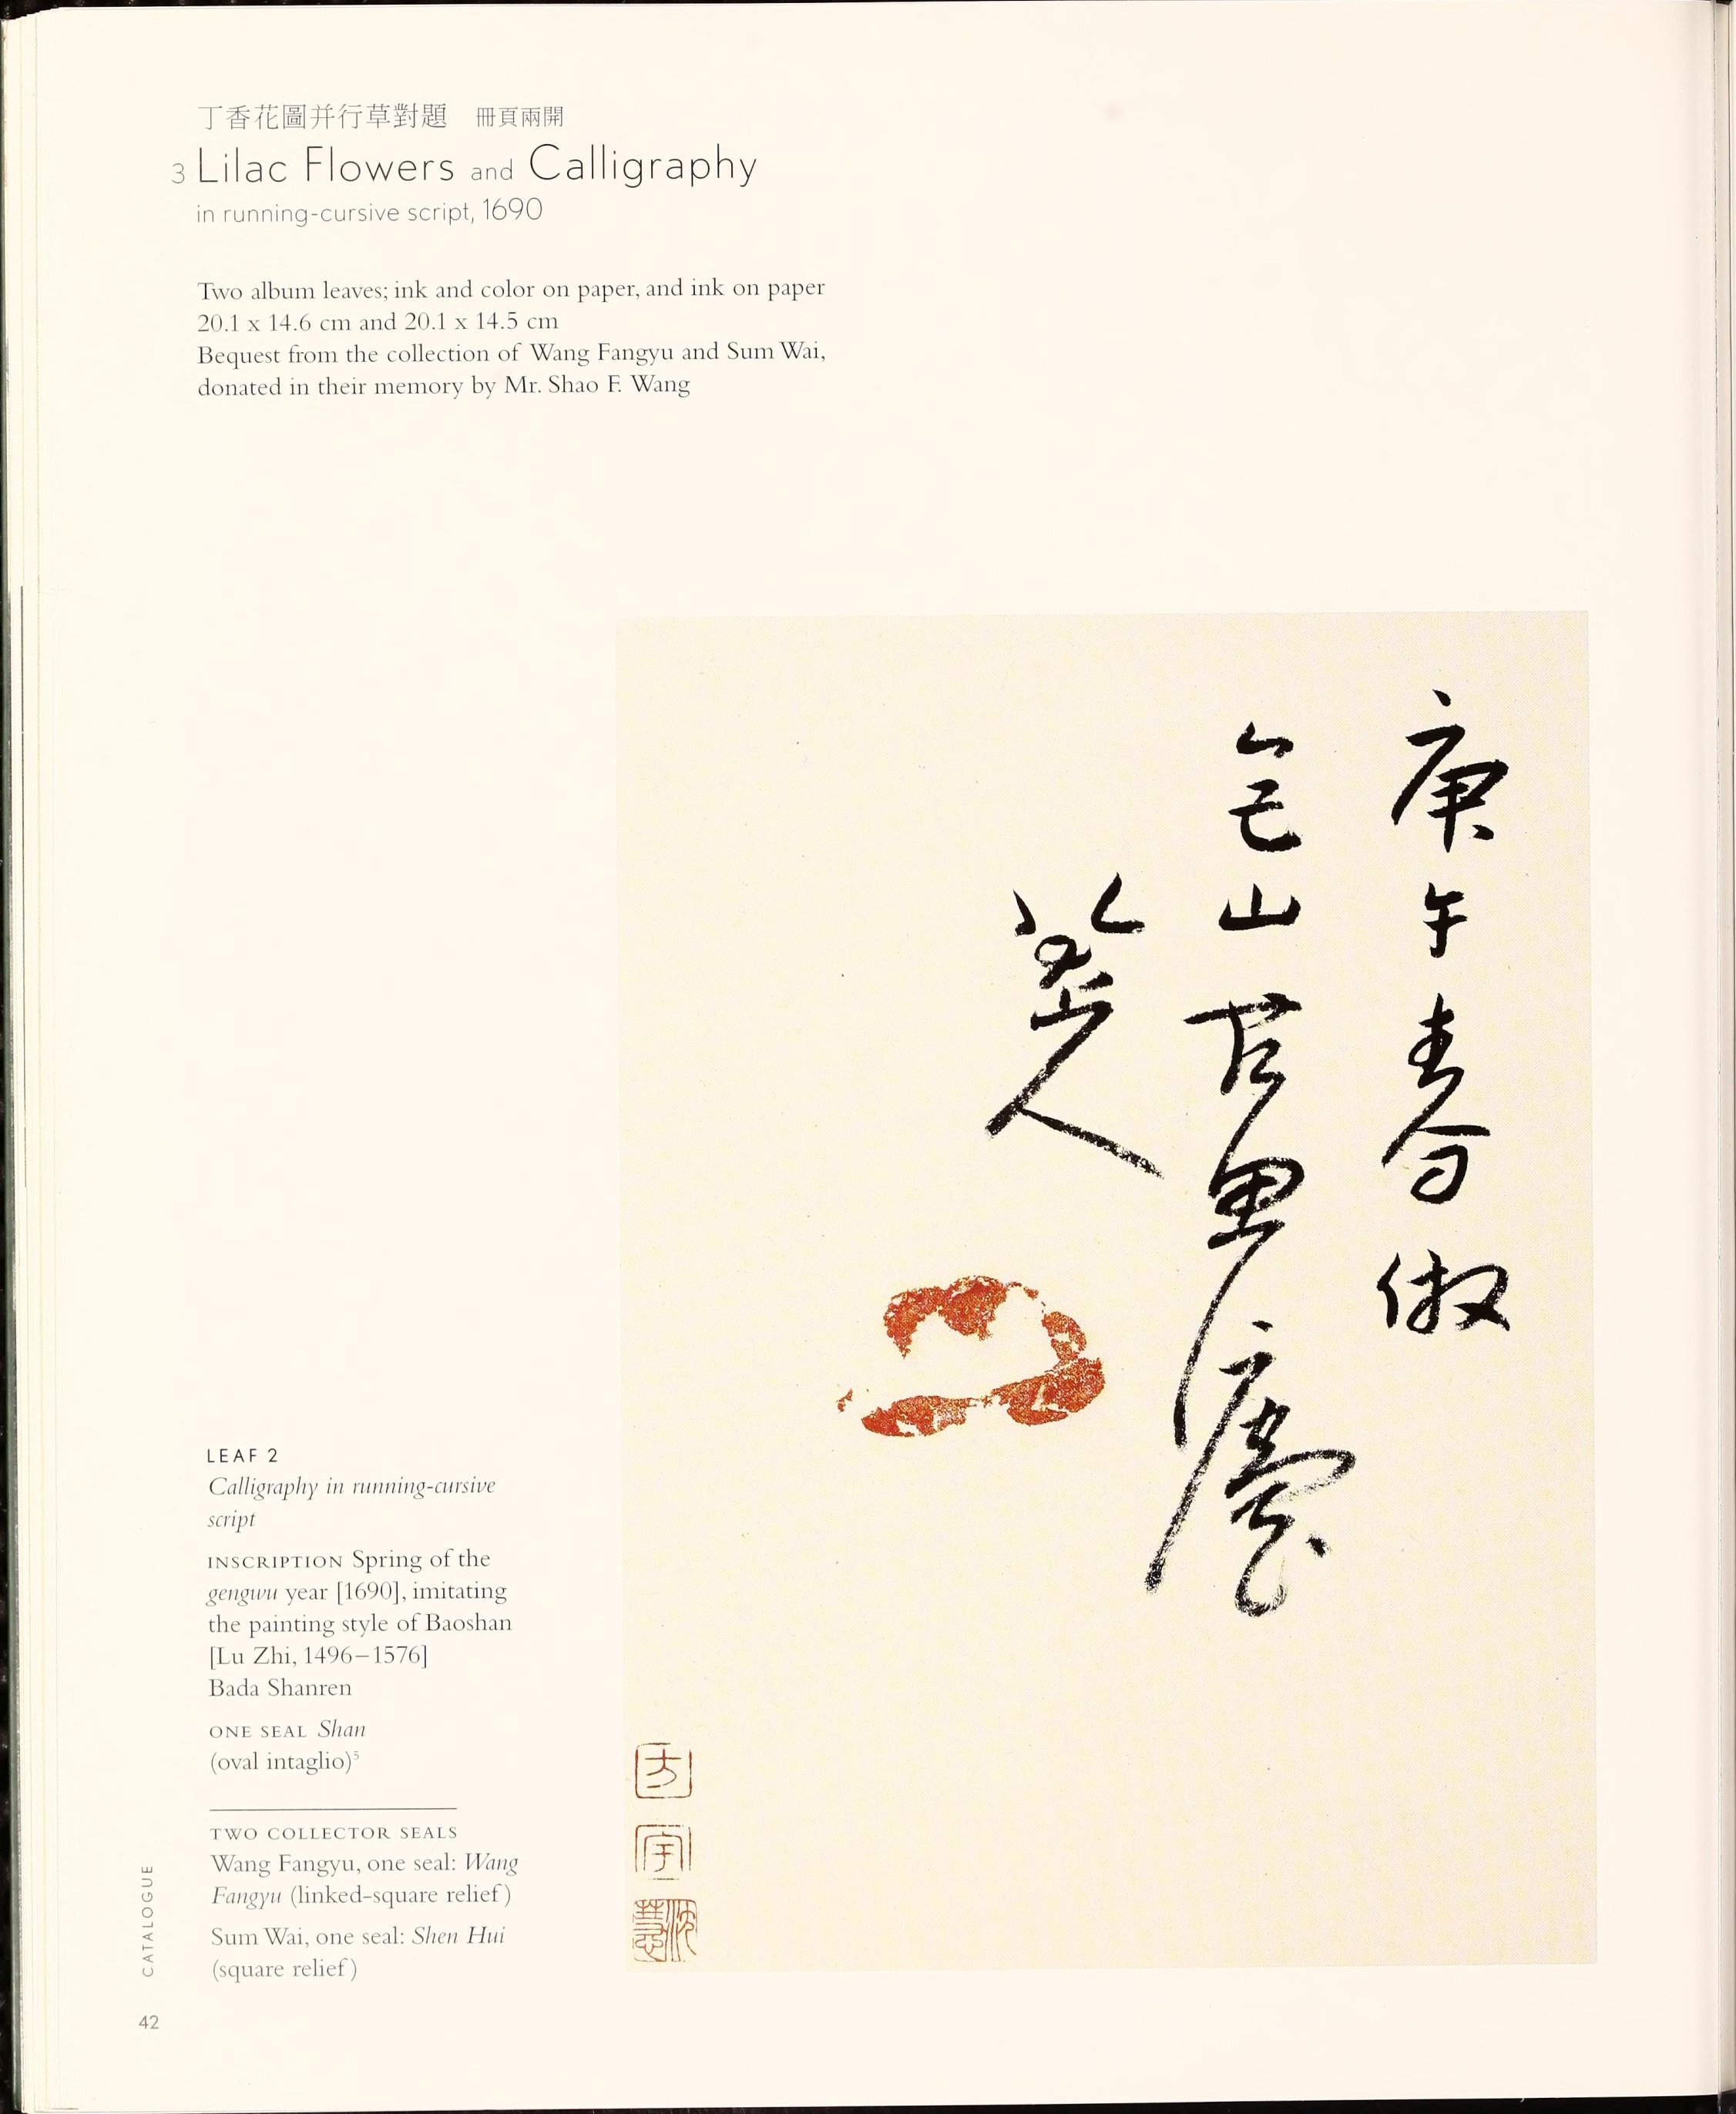 丁香花圖并行草對題 冊頁兩開
3 Lilac Flowers and Calligraphy
in running-cursive script, 1690
Two album leaves; ink and color on paper, and ink on paper
20.1 x 14.6 cm and 20.1 x 14.5 cm
Bequest from the collection of Wang Fangyu and Sum Wai,
donated in their memory by Mr. Shao F. Wang
庚午春倣
包山
八大山人
方
宇
沈慧
LEAF 2
Calligraphy in running-cursive
script
INSCRIPTION Spring of the
gengwu year [1690], imitating
the painting style of Baoshan
[Lu Zhi, 1496–1576]
Bada Shanren
ONE SEAL Shan
(oval intaglio)5
TWO COLLECTOR SEALS
Wang Fangyu, one seal: Wang
Fangyu (linked-square relief)
Sum Wai, one seal: Shen Hui
(square relief)
CATALOGUE
42